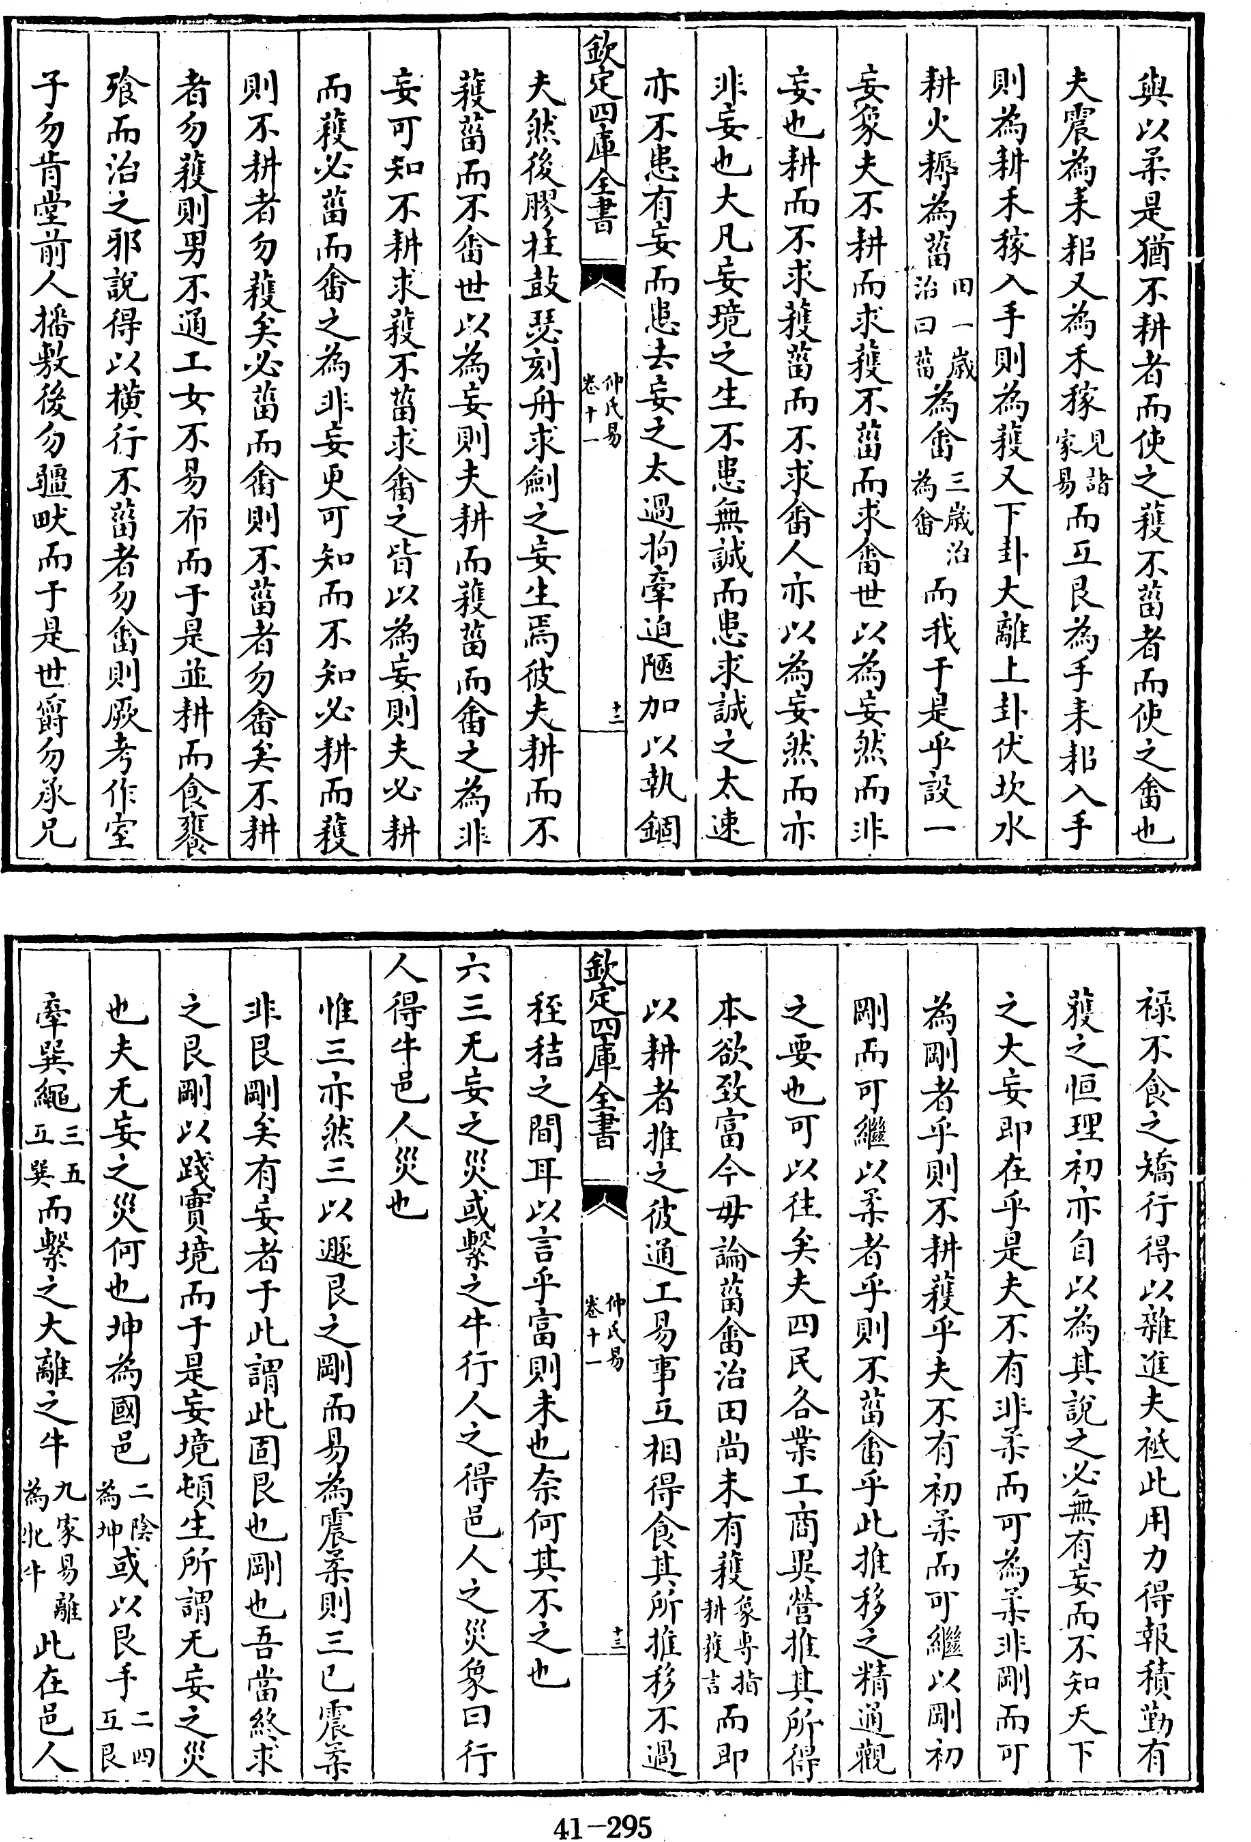 與以柔是猶不耕者而使之穫不菑者而使之畬也
夫震為耒耜又為禾稼見諸家易而互艮為手耒耜入手
則為耕禾稼入手則為穫又下卦大離上卦伏坎水
耕火耨為菑田一歲治曰菑為畬三歲治為畬而我于是乎設一
妄象夫不耕而求穫不菑而求畬世以為妄然而非
妄也耕而不求穫菑而不求畬人亦以為妄然而亦
非妄也大凡妄境之生不患無誠而患求誠之太速
亦不患有妄而患去妄之太過拘牽迫陋加以執錮
欽定四庫全書
仲氏易
卷十一
十二
夫然後膠柱鼓瑟刻舟求劍之妄生焉彼夫耕而不
穫菑而不畬世以為妄則夫耕而穫菑而畬之為非
妄可知不耕求穫不菑求畬之皆以為妄則夫必耕
而穫必菑而畬之為非妄更可知而不知必耕而穫
則不耕者勿穫矣必菑而畬則不菑者勿畬矣不耕
者勿穫則男不通工女不易布而于是並耕而食饔
飧而治之邪說得以橫行不菑者勿畬則厥考作室
子勿肯堂前人播敷後勿疆畎而于是世爵勿承兄
祿不食之矯行得以雜進夫祗此用力得報積勤有
穫之恒理初亦自以為其說之必無有妄而不知天下
之大妄即在乎是夫不有非柔而可為柔非剛而可
為剛者乎則不耕穫乎夫不有初柔而可繼以剛初
剛而可繼以柔者乎則不菑畬乎此推移之精通觀
之要也可以往矣夫四民各業工商與營推其所得
本欲致富今毋論菑畬治田尚未有穫象專指耕穫言而即
以耕者推之彼通工易事互相得食其所推移不過
欽定四庫全書
仲氏易
卷十一
十三
秷秸之間耳以言乎富則未也奈何其不之也
六三无妄之災或繫之牛行人之得邑人之災象曰行
人得牛邑人災也
惟三亦然三以遯艮之剛而易為震柔則三已震柔
非艮剛矣有妄者于此謂此固艮也剛也吾當終求
之艮剛以踐實境而于是妄境頓生所謂无妄之災
也夫无妄之災何也坤為國邑二陰為坤或以艮手二四互艮
牽巽繩三五互巽而繫之大離之牛九家易離為牝牛此在邑人
41-295